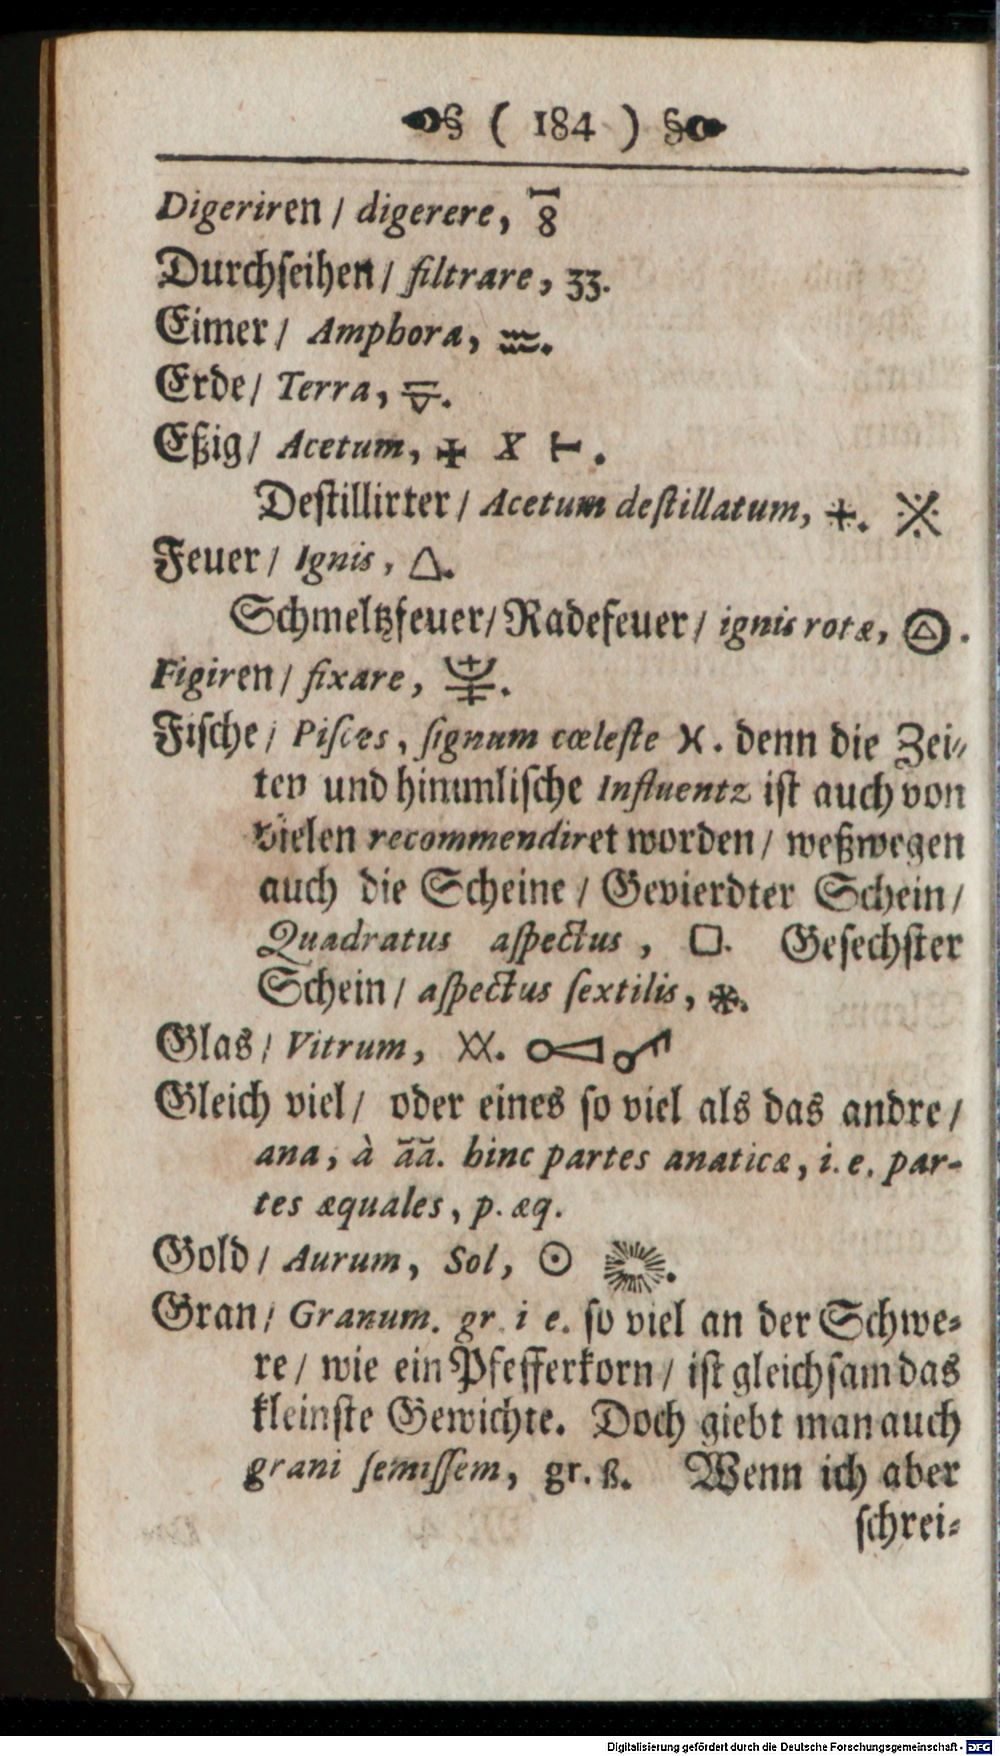 § ( 184 ) §
Digeriren / digerere, 8̅
Durchseihen / filtrare, 33.
Eimer / Amphora, ♒.
Erde / Terra, 🜃.
Eßig / Acetum, ✠ X ⊢.
Destillirter / Acetum destillatum, ⁜. ※
Feuer / Ignis, △.
Schmeltzfeuer / Radefeuer / ignis rotæ, .
Figiren / fixare, .
Fische / Pisces, signum cœleste ♓. denn die Zei⸗
ten und himmlische Influentz ist auch von
vielen recommendiret worden / weßwegen
auch die Scheine / Gevierdter Schein /
Quadratus aspectus, □. Gesechster
Schein / aspectus sextilis, ✱.
Glas / Vitrum, XX.
Gleich viel / oder eines so viel als das andre /
ana, à āā. hinc partes anaticæ, i. e. par-
tes æquales, p. æq.
Gold / Aurum, Sol, ☉ .
Gran / Granum. gr. i e. so viel an der Schwe⸗
re / wie ein Pfefferkorn / ist gleichsam das
kleinste Gewichte. Doch giebt man auch
grani semissem, gr. ß. Wenn ich aber
schrei⸗
Digitalisierung gefördert durch die Deutsche Forschungsgemeinschaft - DFG